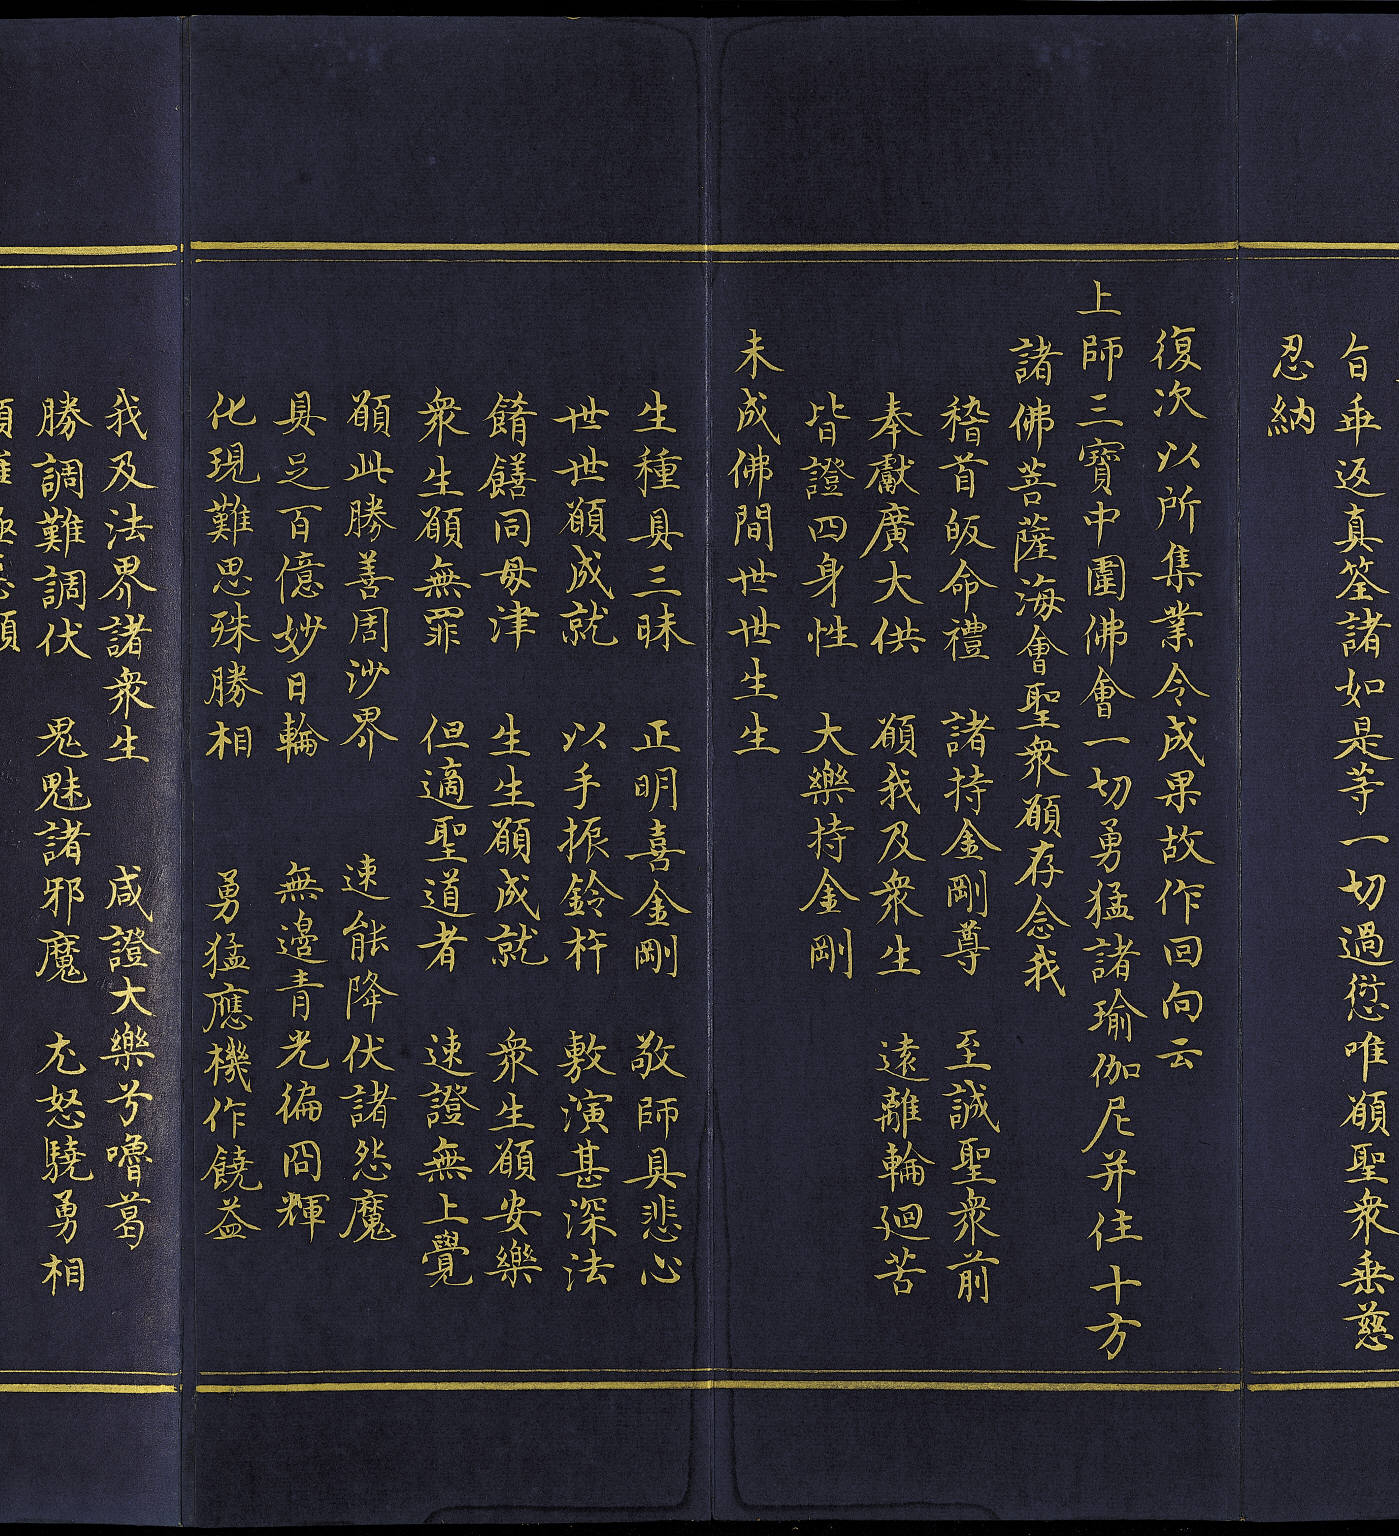 旨乖返真筌諸如是等一切過愆唯願聖衆垂慈
忍納
復次以所集業令成果故作回向云
上師三寶中圍佛會一切勇猛諸瑜伽尼并住十方
諸佛菩薩海會聖衆願存念我
稽首皈命禮 諸持金剛尊 至誠聖衆前
奉獻廣大供 願我及衆生 遠離輪迴苦
皆證四身性 大樂持金剛
未成佛間世世生生
生種具三昧 正明喜金剛 敬師具悲心
世世願成就 以手振鈴杵 敷演甚深法
餚饍同毋津 生生願成就 衆生願安樂
衆生願無罪 但適聖道者 速證無上覺
願此勝善周沙界 速能降伏諸怨魔
具足百億妙日輪 無邊青光徧冏輝
化現難思殊勝相 勇猛應機作饒益
我及法界諸衆生 咸證大樂兮嚕葛
勝調難調伏 鬼魅諸邪魔 尢怒驍勇相